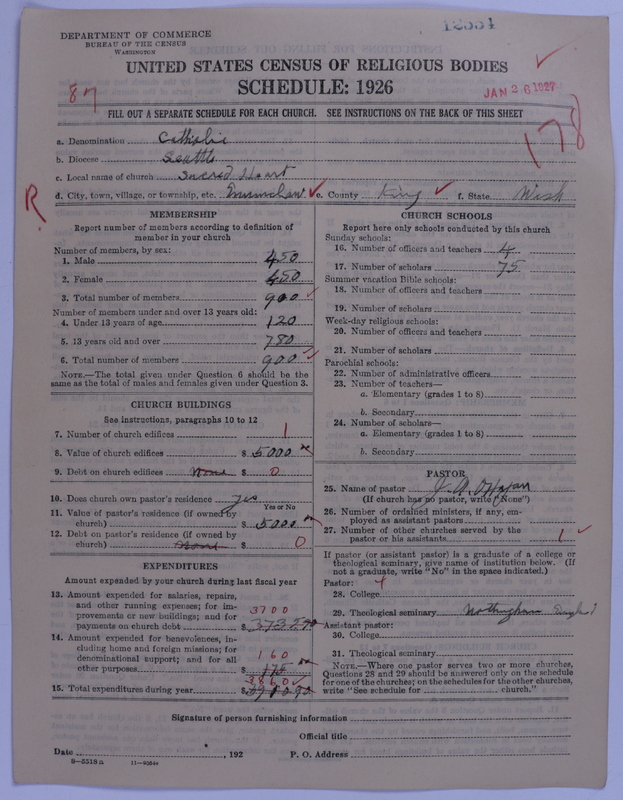 12334
DEPARTMENT OF COMMERCE
BUREAU OF THE CENSUS
WASHINGTON
UNITED STATES CENSUS OF RELIGIOUS BODIES
SCHEDULE: 1926
87
JAN 26 1927
178
FILL OUT A SEPARATE SCHEDULE FOR EACH CHURCH. SEE INSTRUCTIONS ON THE BACK OF THIS SHEET
a. Denomination Catholic
b. Diocese Seattle
c. Local name of church Sacred Heart
R
d. City, town, village, or township, etc. Enumclaw e. County King f. State Wash
MEMBERSHIP
Report number of members according to definition of
member in your church
Number of members, by sex:
1. Male 450
2. Female 450
3. Total number of members 900
Number of members under and over 13 years old:
4. Under 13 years of age 120
5. 13 years old and over 780
6. Total number of members 900
NOTE.—The total given under Question 6 should be the
same as the total of males and females given under Question 3.
CHURCH BUILDINGS
See instructions, paragraphs 10 to 12
7. Number of church edifices 1
8. Value of church edifices $ 5000
9. Debt on church edifices none $ 0
10. Does church own pastor's residence yes
Yes or No
11. Value of pastor's residence (if owned by
church) $ 5000
12. Debt on pastor's residence (if owned by
church) none $ 0
EXPENDITURES
Amount expended by your church during last fiscal year
13. Amount expended for salaries, repairs,
and other running expenses; for im-
provements or new buildings; and for
payments on church debt $ 3700
14. Amount expended for benevolences, in-
cluding home and foreign missions; for
denominational support; and for all
other purposes $ 160 175
15. Total expenditures during year $ 3860
CHURCH SCHOOLS
Report here only schools conducted by this church
Sunday schools:
16. Number of officers and teachers 4
17. Number of scholars 75
Summer vacation Bible schools:
18. Number of officers and teachers
19. Number of scholars
Week-day religious schools:
20. Number of officers and teachers
21. Number of scholars
Parochial schools:
22. Number of administrative officers
23. Number of teachers—
a. Elementary (grades 1 to 8)
b. Secondary
24. Number of scholars—
a. Elementary (grades 1 to 8)
b. Secondary
PASTOR
25. Name of pastor
(If church has no pastor, write "None")
26. Number of ordained ministers, if any, em-
ployed as assistant pastors
27. Number of other churches served by the
pastor or his assistants 1
If pastor (or assistant pastor) is a graduate of a college or
theological seminary, give name of institution below. (If
not a graduate, write "No" in the space indicated.)
Pastor: 4
28. College
29. Theological seminary Nottingham England
Assistant pastor:
30. College
31. Theological seminary
NOTE.—Where one pastor serves two or more churches,
Questions 28 and 29 should be answered only on the schedule
for one of the churches; on the schedules for the other churches,
write "See schedule for church."
Signature of person furnishing information
Official title
Date , 192 P. O. Address
8—5518a 11—9584